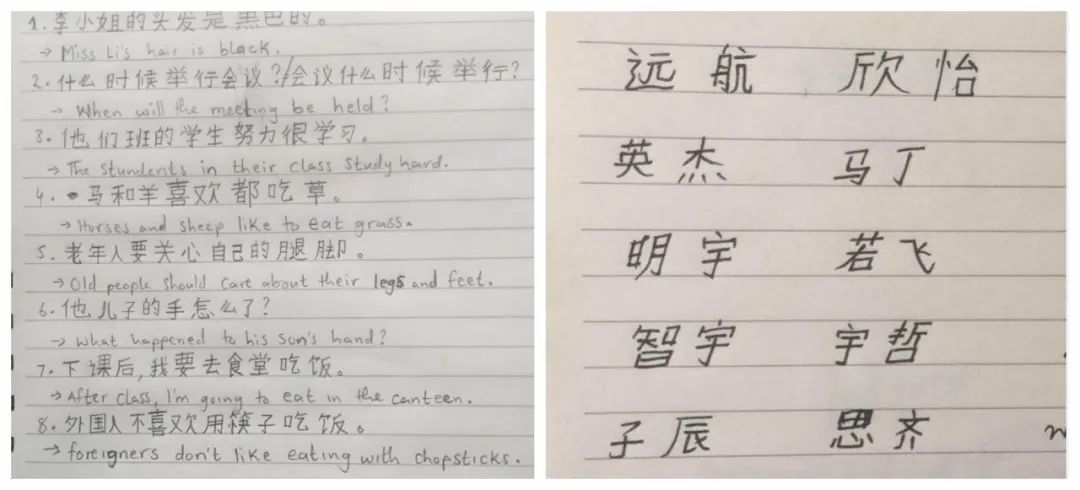 1. 李小姐的头发是黑色的。
→ Miss Li's hair is black.
2. 什么时候举行会议?/会议什么时候举行?
→ When will the meeting be held?
3. 他们班的学生努力很学习。
→ The Stundents in their class study hard.
4. 马和羊喜欢都吃草。
→ Horses and sheep like to eat grass.
5. 老年人要关心自己的腿脚。
→ Old people should care about their legs and feet.
6. 他儿子的手怎么了?
→ What happened to his son's hand?
7. 下课后,我要去食堂吃饭。
→ After class, I'm going to eat in the canteen.
8. 外国人不喜欢用筷子吃饭。
→ foreigners don't like eating with chopsticks.
远航 欣怡
英杰 马丁
明宇 若飞
智宇 宇哲
子辰 思齐